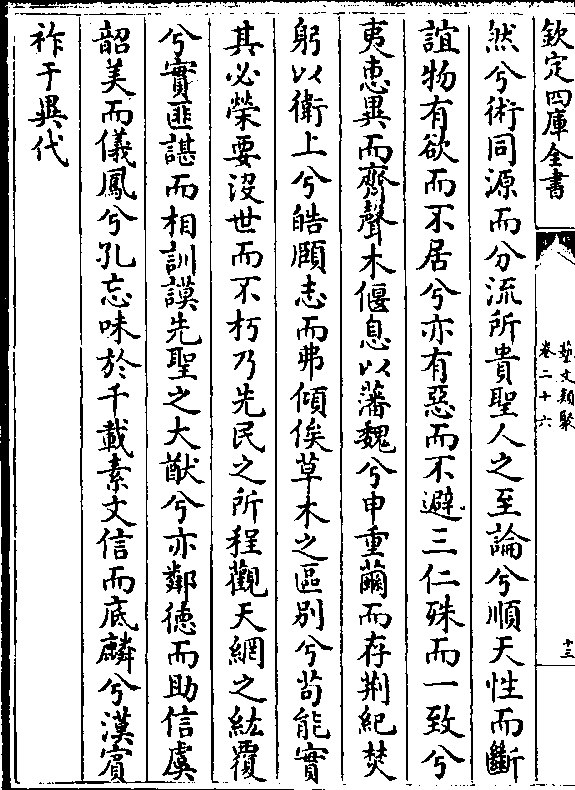 欽定四庫全書
藝文類聚
卷二十六
十三
然兮術同源而分流所貴聖人之至論兮順天性而斷
誼物有欲而不居兮亦有惡而不避三仁殊而一致兮
夷惠異而齊聲木偃息以藩魏兮申重繭而存荆紀焚
躬以衛上兮皓頤志而弗傾俟草木之區別兮苟能實
其必榮要沒世而不朽乃先民之所程觀天網之紘覆
兮實匪諶而相訓謨先聖之大猷兮亦鄰德而助信虞
韶美而儀鳳兮孔忘味於千載素文信而底麟兮漢賓
祚于異代